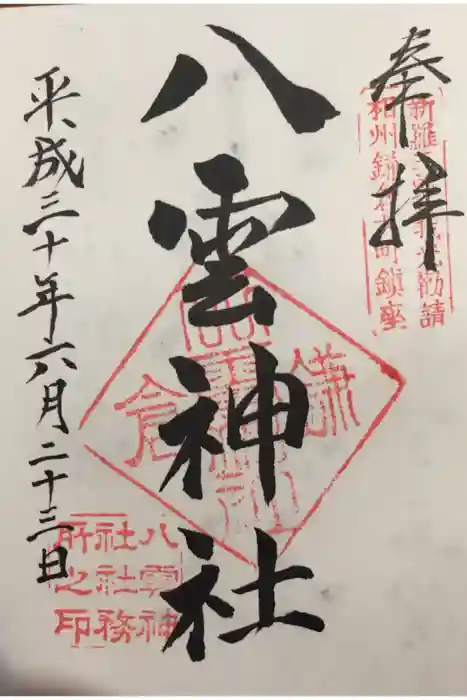 奉拝
新羅三郎義光勧請
相州鎌倉大町鎮座
八雲神社
鎌倉
八雲神
社社務
所之印
平成三十年六月二十三日